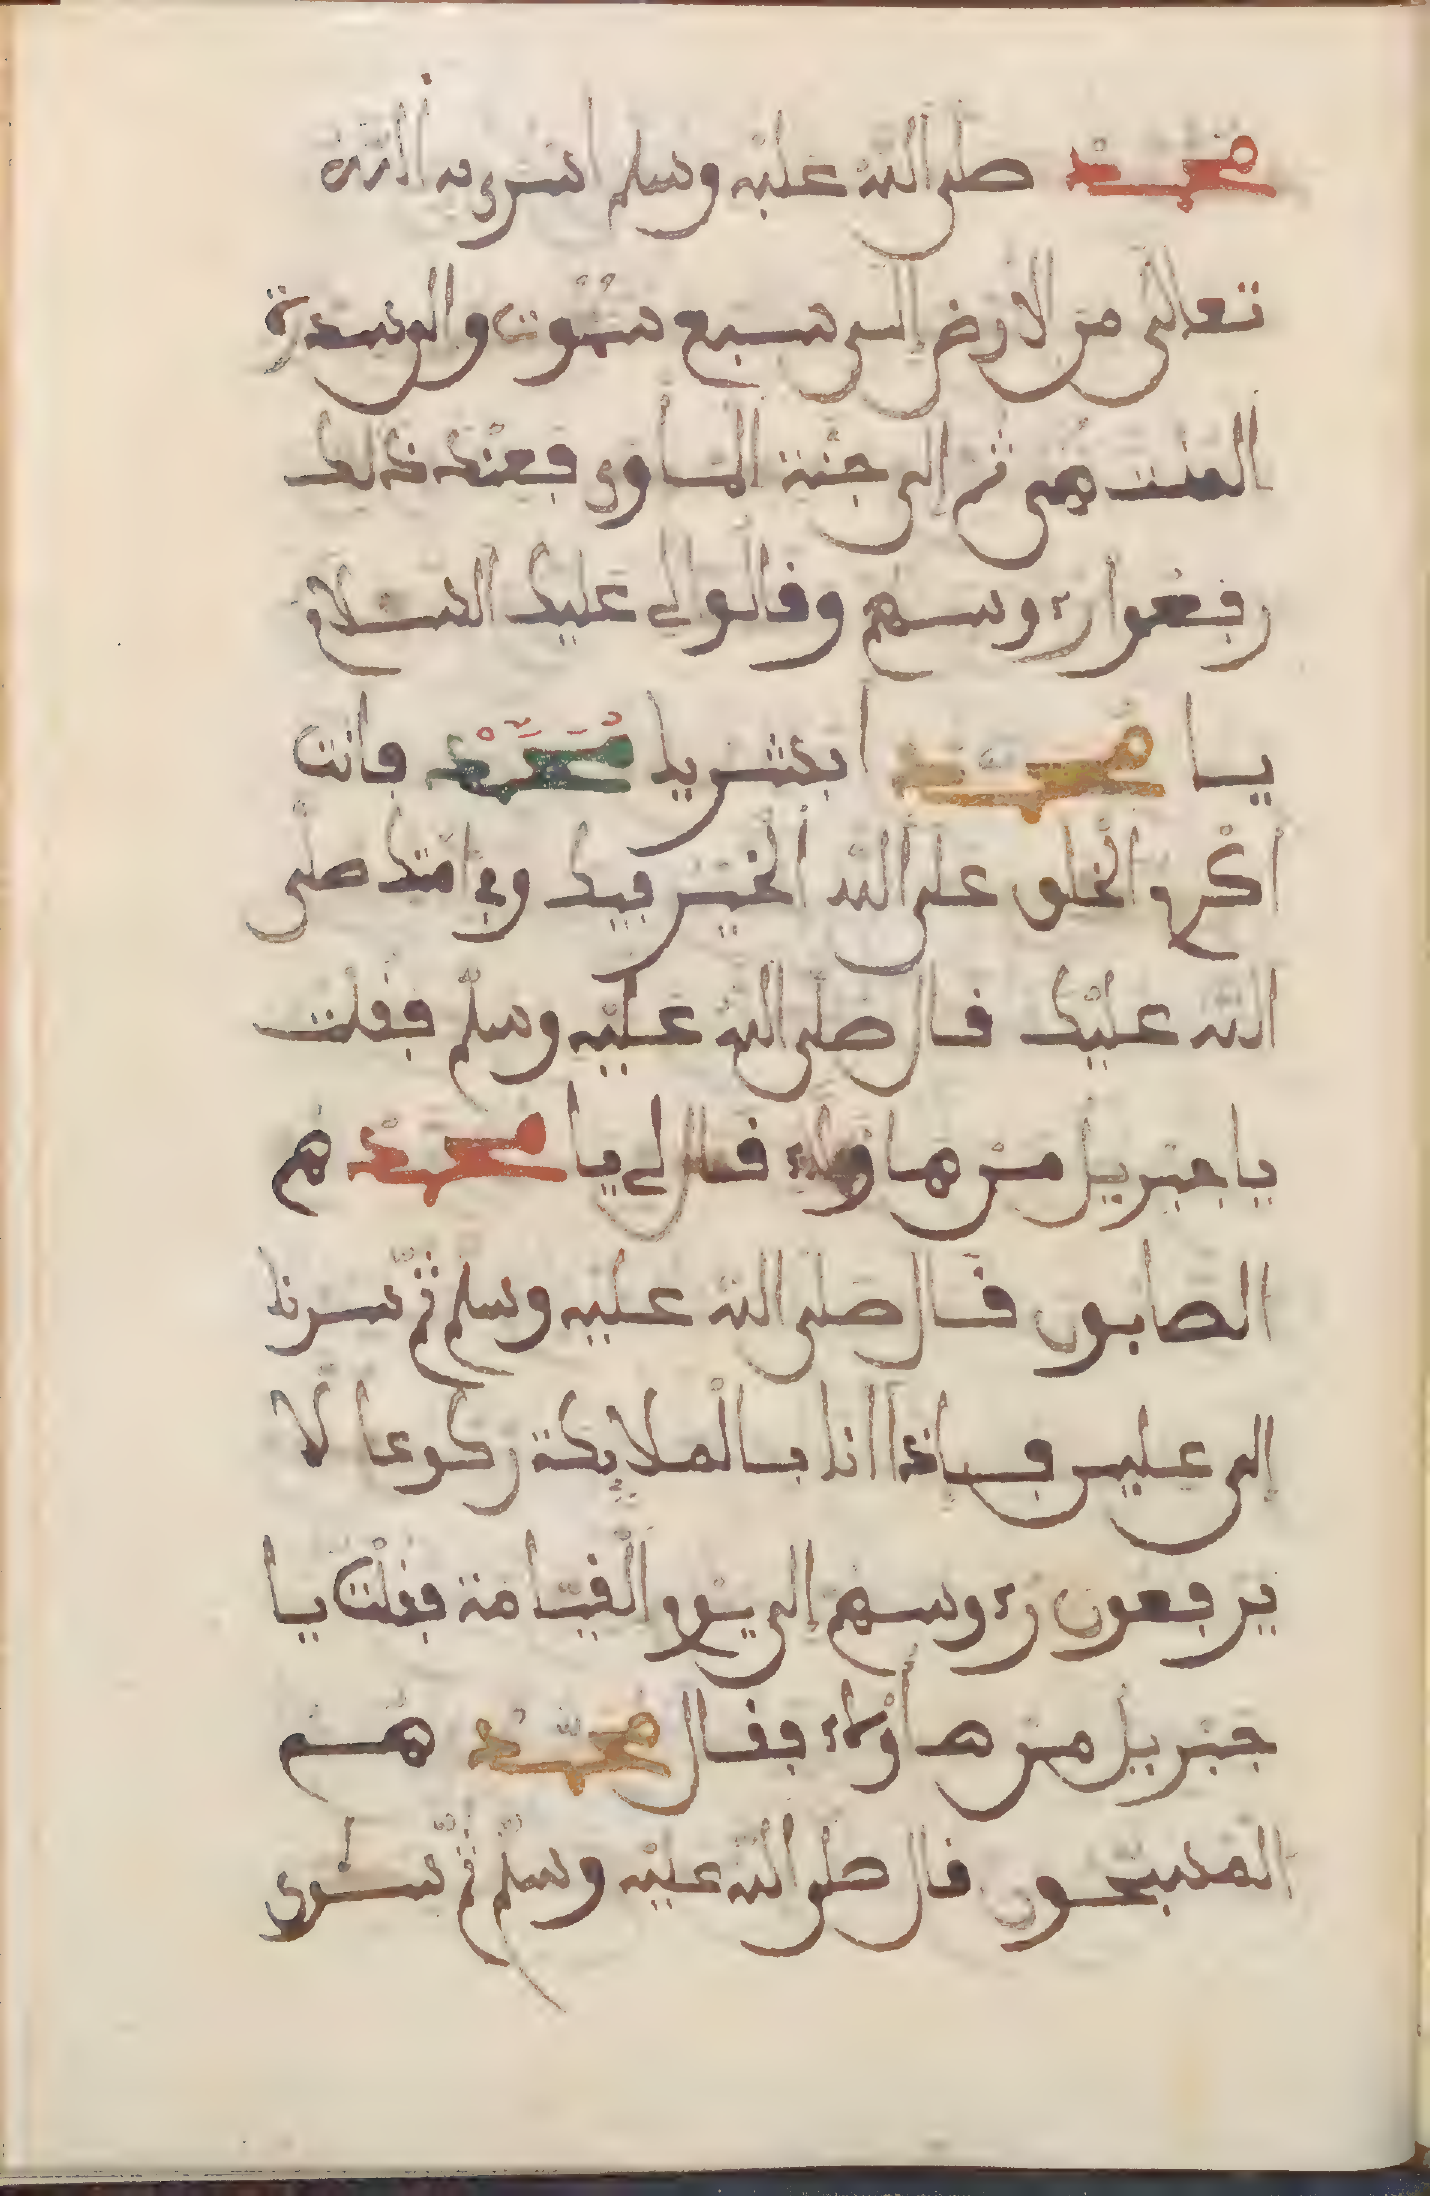 محمد صلى الله عليه وسلم اسرى به الله
تعالى من الارض الى سبع سموت والى سدرة
المنتهى ثم الى جنة المأوى فعند ذلك
رفعوا رءوسهم وقالوا لي عليك السلام
يا محمد ابشر يا محمد فانت
اكرم الخلق على الله الخير فيك وفي امتك صلى
الله عليك قال صلى الله عليه وسلم فقلت
يا جبريل من هاؤلاء فقال لي يا محمد هم
الصابون قال صلى الله عليه وسلم ثم سرنا
الى عليين فإذا انا بالملايكة ركوعا لا
يرفعون رءوسهم الى يوم القيامة فقلت يا
جبريل من هاؤلاء فقال محمد هم
المسبحون قال صلى الله عليه وسلم ثم